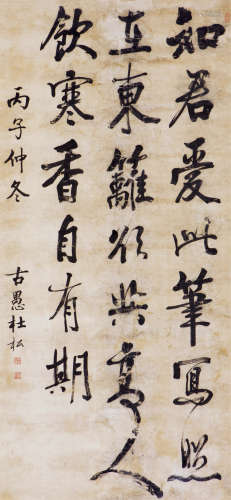 知君愛此筆寫照
在東籬欲與高人
飲寒香自有期
丙子仲冬
古愚杜松